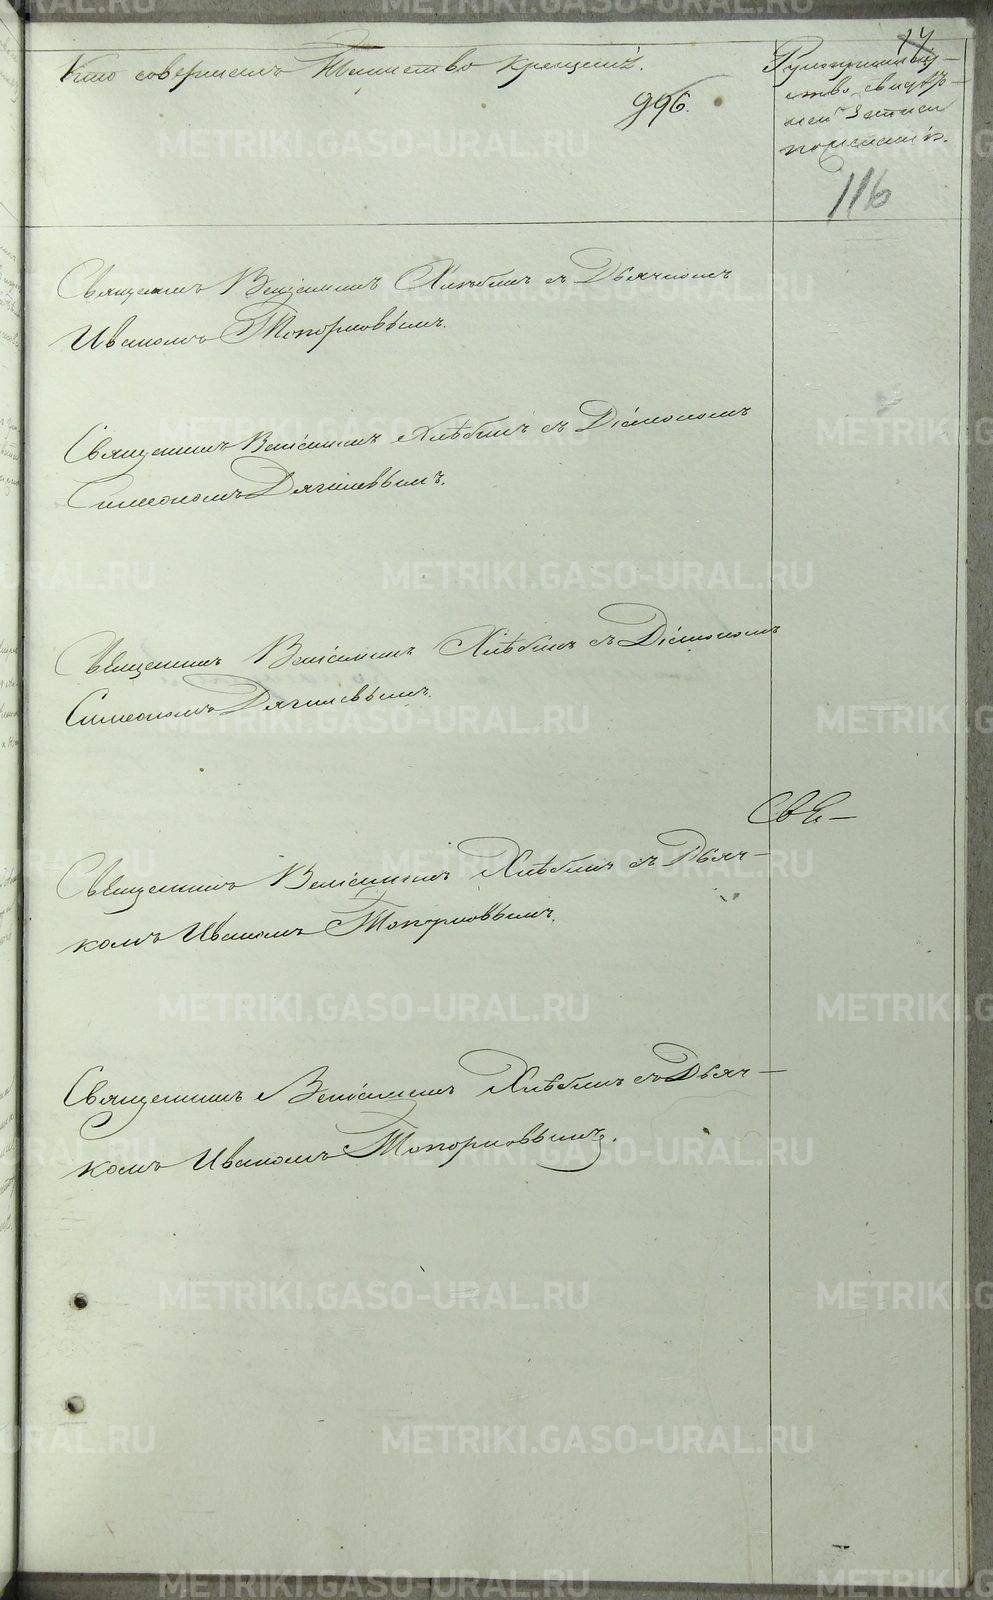 14
Кто совершалъ Таинство крещенія.
996.
Рукоприклад-
ство свидѣ-
телей записи
по желанію.
116
Священникъ Веніаминъ Хлѣбинъ съ Дьячкомъ
Иваномъ Топорковымъ.
Священникъ Веніаминъ Хлѣбинъ съ Діакономъ
Симеономъ Дягилевымъ.
Священникъ Веніаминъ Хлѣбинъ съ Діакономъ
Симеономъ Дягилевымъ.
Священникъ Веніаминъ Хлѣбинъ съ Дьяч-
комъ Иваномъ Топорковымъ.
Священникъ Веніаминъ Хлѣбинъ съ Дьяч-
комъ Иваномъ Топорковымъ.
METRIKI.GASO-URAL.RU